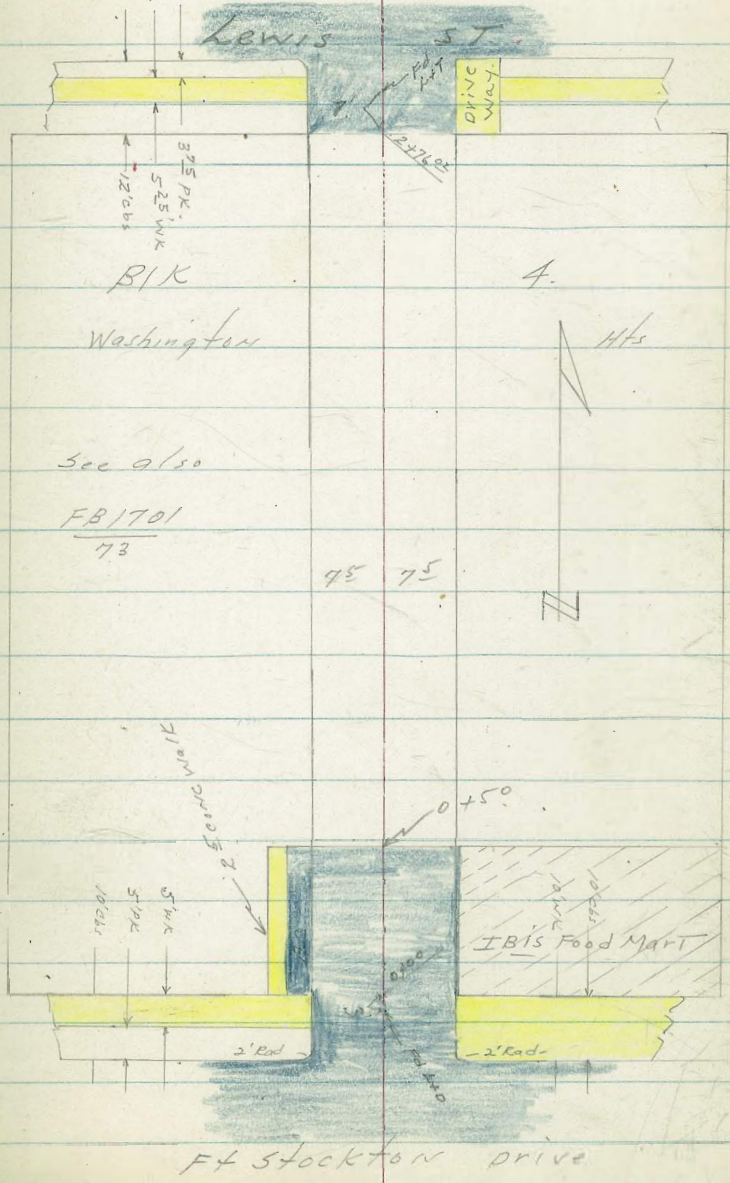 Lewis ST.
Fd
Drive
Way.
2+76.02
3.75 PK.
5.25 WK
12' cbs
Blk 4.
Washington Hts
See also
FB1701
73
7.5 7.5
0+50.
10' cbs
5' PK
5' WK
10' WK
10' cbs
IBis Food Mart
0+00
2' Rad
2' Rad
Ft Stockton Drive